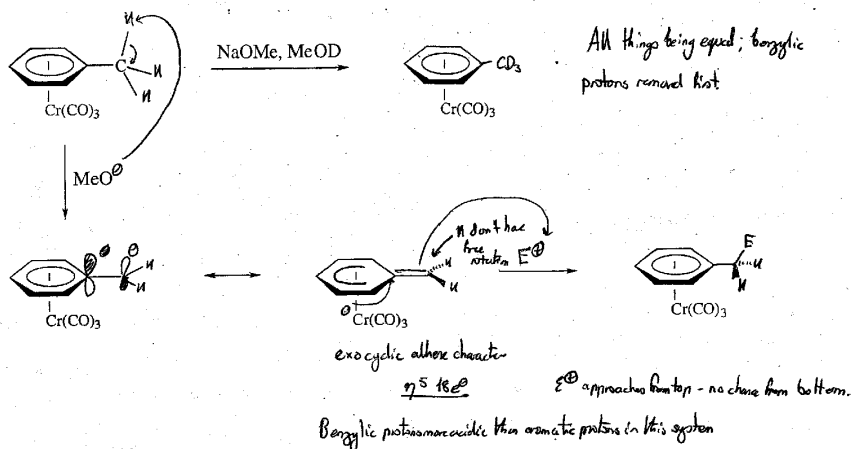 H
C
H
H
Cr(CO)₃
NaOMe, MeOD
CD₃
Cr(CO)₃
All things being equal; benzylic
protons removed first.
MeO⊖
⊖ ⊖
H
H
Cr(CO)₃
H don't have
free
rotation E⊕
H
H
⊖
Cr(CO)₃
E
H
H
Cr(CO)₃
exocyclic alkene character
η⁵ 18e⊖
E⊕ approaches from top - no chance from bottom.
Benzylic protons more acidic than aromatic protons in this system